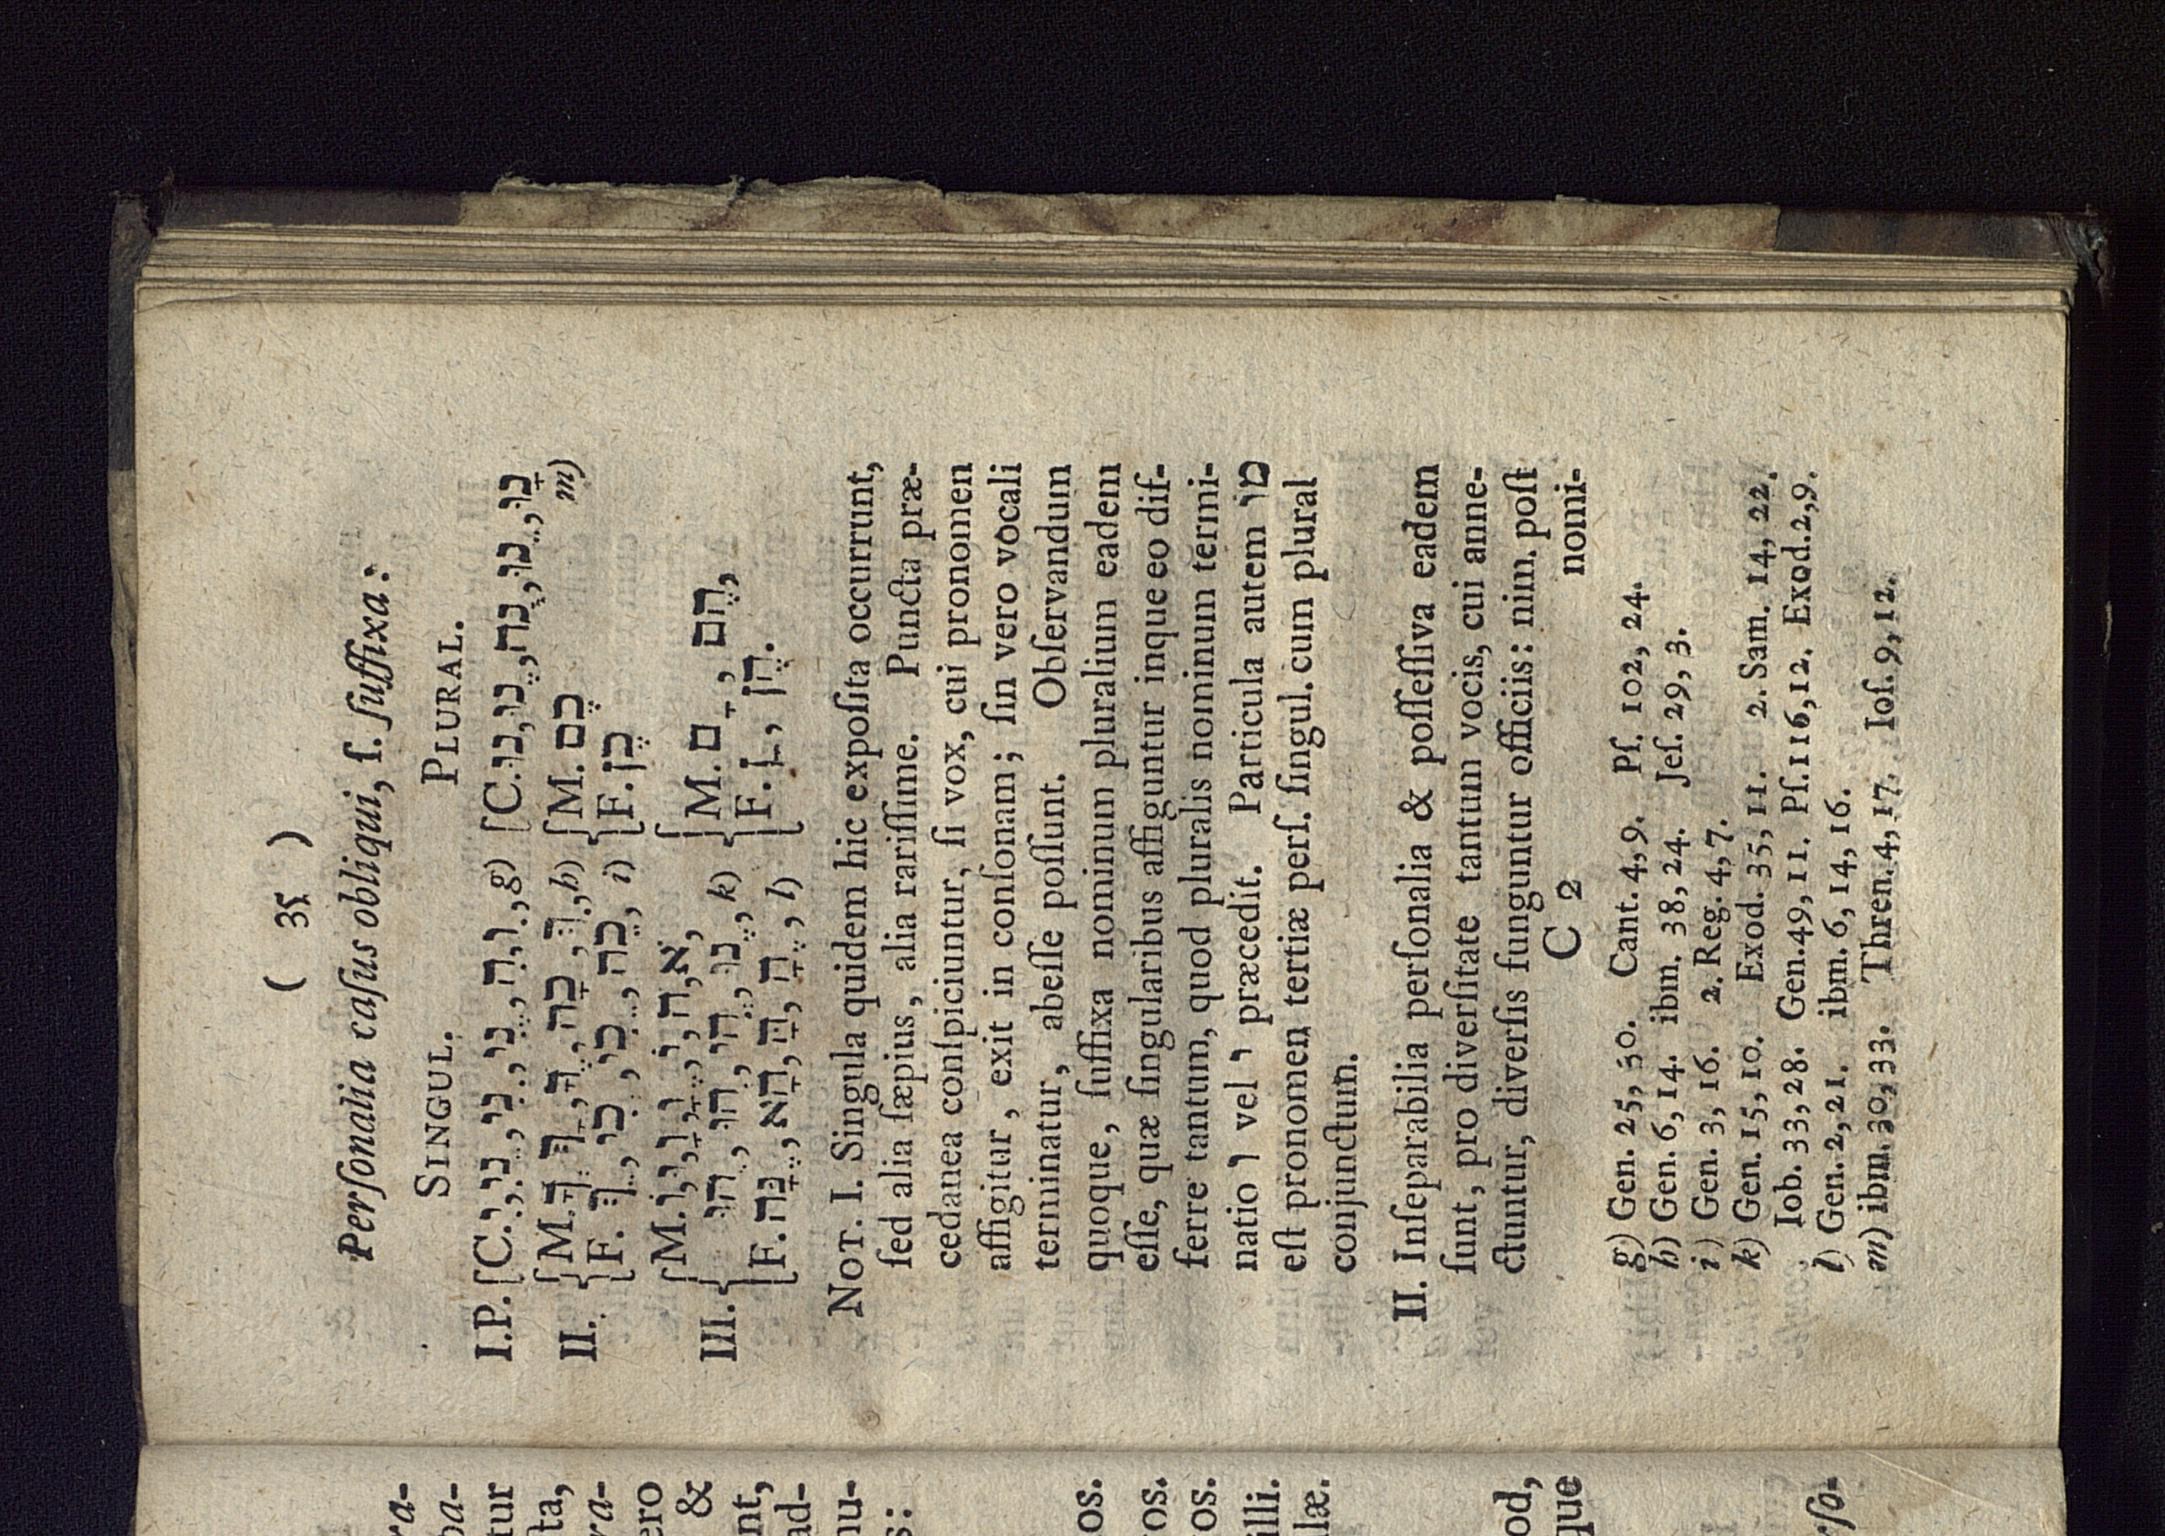 ( 35 )
Perſonalia caſus obliqui, ſ. ſuffixa:
SINGUL. PLURAL.
I.P. C. g) C.
II. M. h) M. כֶם
F. i) F. כֶן m)
III. M. M. ם, הֶם,
k)
F. l) F. ן, הֶן.
NOT. I. Singula quidem hic expoſita occurrunt,
ſed alia ſæpius, alia rariſſime. Puncta præ-
cedanea conſpiciuntur, ſi vox, cui pronomen
affigitur, exit in conſonam; ſin vero vocali
terminatur, abeſſe poſſunt. Obſervandum
quoque, ſuffixa nominum pluralium eadem
eſſe, quæ ſingularibus affiguntur inque eo dif-
ferre tantum, quod pluralis nominum termi-
natio ו vel י præcedit. Particula autem מו
eſt pronomen tertiæ perſ. ſingul. cum plural
conjunctum.
II. Inſeparabilia perſonalia & poſſeſſiva eadem
ſunt, pro diverſitate tantum vocis, cui anne-
ctuntur, diverſis funguntur officiis: nim. poſt
C 2 nomi-
g) Gen. 25, 30. Cant. 4, 9. Pſ. 102, 24.
h) Gen. 6, 14. ibm. 38, 24. Jeſ. 29, 3.
i) Gen. 3, 16. 2. Reg. 4, 7.
k) Gen. 15, 10. Exod. 35, 11. 2. Sam. 14, 22.
Iob. 33, 28. Gen. 49, 11. Pſ. 116, 12. Exod. 2, 9.
l) Gen. 2, 21. ibm. 6, 14, 16.
m) ibm. 30, 33. Thren. 4, 17. Ioſ. 9, 12.